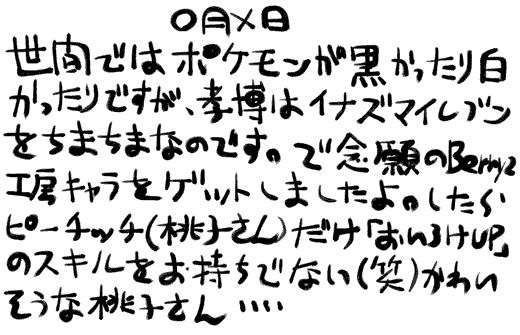 〇月×日
世間ではポケモンが黒かったり白
かったりですが、孝博はイナズマイレブン
をちまちまなのです。で念願のBerryz
工房キャラをゲットしましたよ。したら
ピーチッチ(桃子さん)だけ「おいろけUP」
のスキルをお持ちでない(笑)かわい
そうな桃子さん‥‥